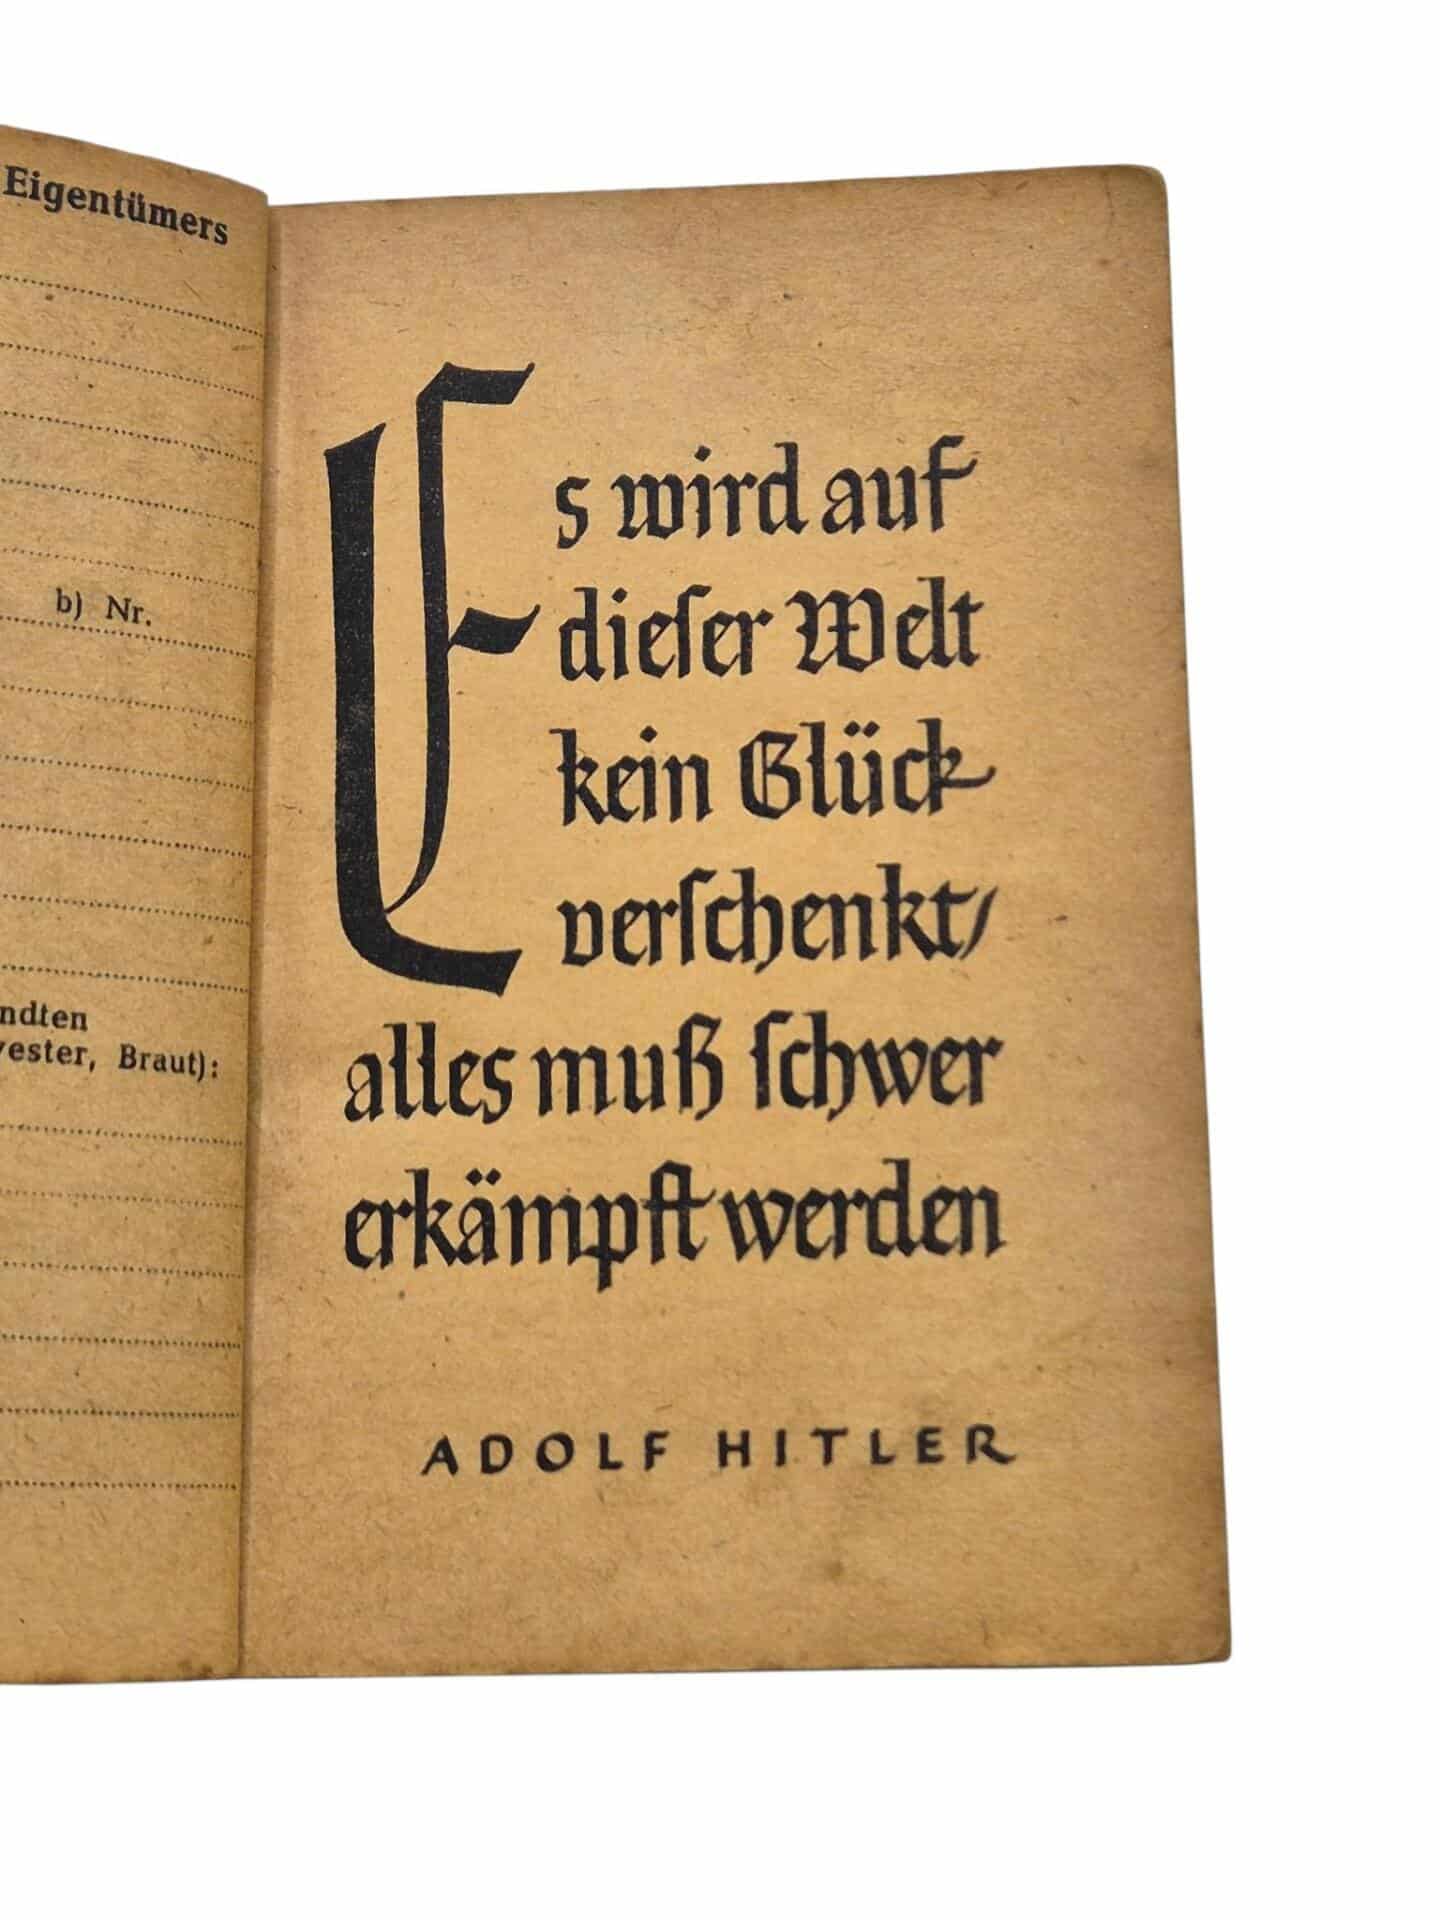 Eigentümers
b) Nr.
ndten
ester, Braut):
Es wird auf
dieſer Welt
kein Glück
verſchenkt/
alles muß ſchwer
erkämpft werden
ADOLF HITLER